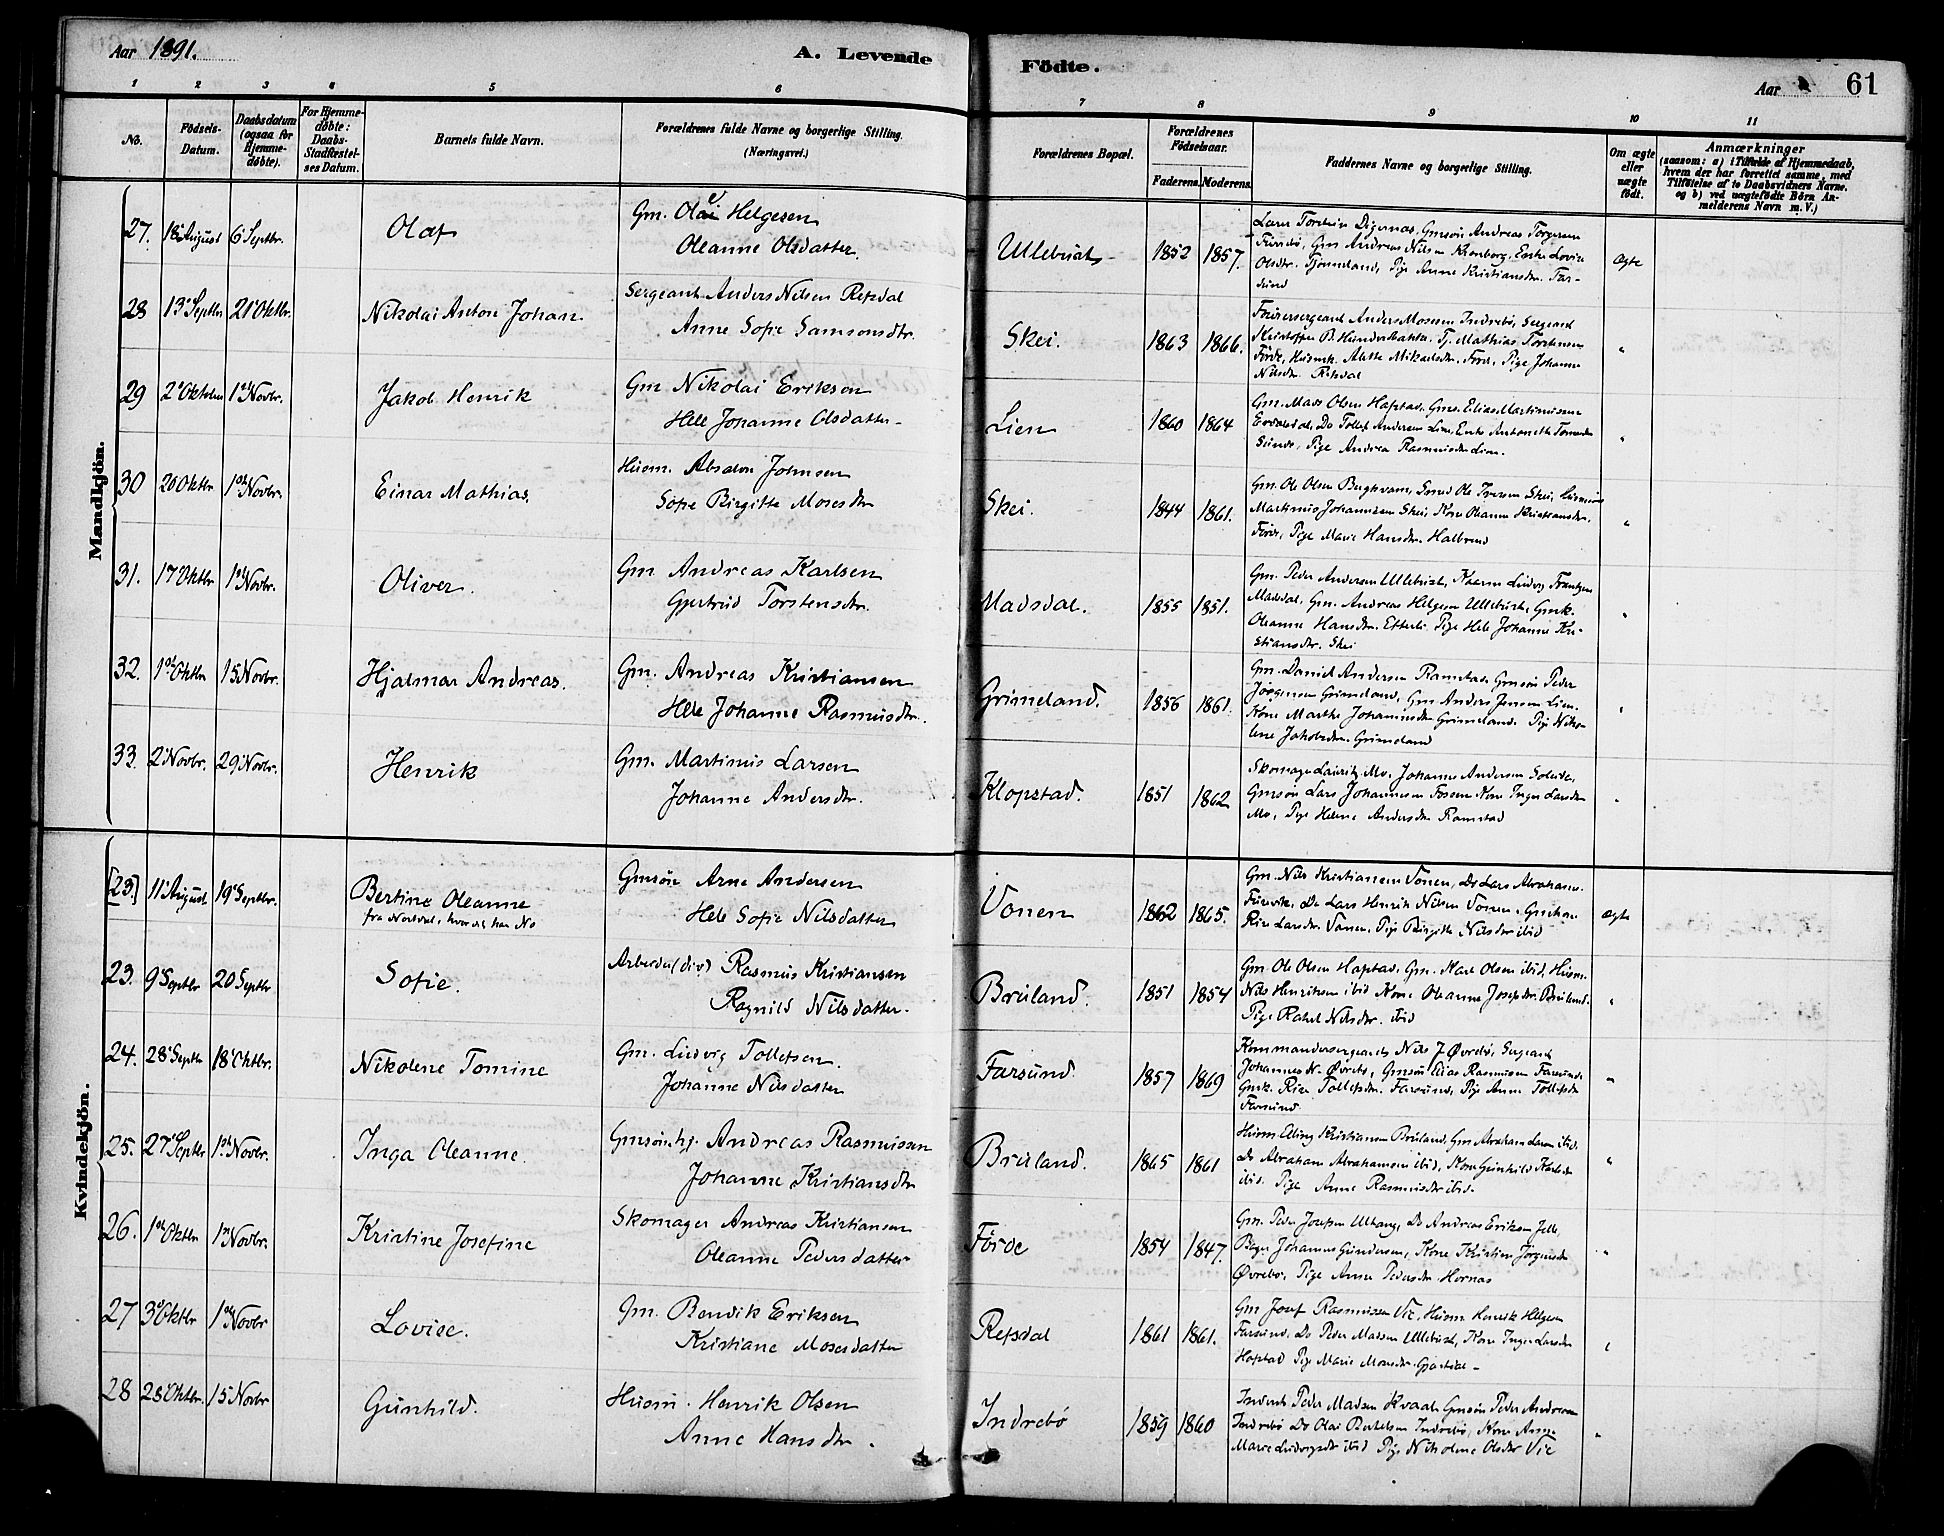 Aar 1891.
A. Levende Födte.
Aar
61
1 2 3 4 5 6 7 8 9 10 11
No.
Födsels-Datum.
Daabsdatum (ogsaa for Hjemme-döbte).
For Hjemme-döbte: Daabs-Stadfæstel-ses Datum.
Barnets fulde Navn.
Forældrenes fulde Navne og borgerlige Stilling. (Næringsvei.)
Forældrenes Bopæl.
Forældrenes Födselsaar.
Faderens. Moderens.
Faddernes Navne og borgerlige Stilling.
Om ægte eller uægte födt.
Anmærkninger
(saasom: a) i Tilfælde af Hjemmedaab,
hvem der har forrettet samme, med
Tilföielse af to Daabsvidners Navne.
og b) ved uægtefödte Börn An-
melderens Navn m. V.)
Mandkjön.
27. 18 August 6 Septbr. Olaf
Gm. Olai Helgesen
Oleanne Olsdatter.
Ullebust 1852 1857.
Andreas Torgersen
Gm Andreas Nilsen Kronborg, Enke Lovise
Olsdtr. Tjønneland, Pige Anne Kristiansdtr. Far-
sund
Ægte
28 13 Septbr 21 Oktbr. Nikolai Anton Johan.
Sergeant Anders Nilsen Refsdal
Anne Sofie Samsonsdtr.
Skei. 1863 1866.
Fouriersergeant Anders Mosesen Indrebø, Sergeant
Kristoffer B. Tj. Mathias Torstensen
Førde, Alette Mikaelsdtr. Førde, Pige Johanne
Nilsdtr. Refsdal
"
29 2 Oktober 1 Novbr. Jakob Henrik
Gm Nikolai Eriksen
Hele Johanne Olsdatter
Lien 1860 1864
Gm. Mads Olsen Hafstad, Elias Martinussen
Do Tollef Andersen Lien, Enke Antonette
Sunde, Pige Andrea Rasmusdtr Lien.
"
30 20 Oktbr 1 Novbr. Einar Mathias.
Husm. Absalon Johnsen
Sofie Birgitte Mosesdtr
Skei. 1844 1861.
Gm. Ole Olsen Smed Ole Iversen Skei,
Martinus Johannesen Skei, Kone Oleanne Kristiansdtr.
Førde, Pige Marie Hansdtr. Halbrend
"
31. 17 Oktbr 1 Novbr. Oliver.
Gm Andreas Karlsen
Gjertrud Torstensdtr.
Madsdal. 1855 1851.
Gm. Peder Andersen Ullebust, Ludvig Frantzen
Madsdal, Gm. Andreas Helgesen Ullebust, Gmk.
Oleanne Hansdtr. Pige Hele Johanne Kri-
stiansdtr. Skei
"
32. 1 Oktbr 15 Novbr. Hjalmar Andreas.
Gm. Andreas Kristiansen
Hele Johanne Rasmusdtr.
Grimeland. 1856 1861.
Gm. Daniel Andersen Ramstad, Gmsøn Peder
Jørgensen Grimeland, Gm Anders Jensen Lien.
Kone Marthe Johannesdtr Grimeland. Pige Niko-
line Jakobsdtr. Grimeland
"
33. 2 Novbr. 29 Novbr. Henrik
Gm. Martinus Larsen
Johanne Andersdtr.
Klopstad. 1851 1862
Skomager Lauritz Mo, Johannes Andersen
Gmsøn Lars Johannesen Fossen Kone Inger Larsdtr
Mo, Pige Helene Andersdtr Ramstad
"
Kvindekjön.
[23.] 11 August 19 Septbr. Bertine Oleanne
fra
Gmsøn Arne Andersen
Hele Sofie Nilsdatter
Vonen 1862 1865.
Gm. Nils Kristiansen Vonen, Do Lars Abrahams.
Do Lars Henrik Nilsen Vonen,
Larsdtr. Vonen, Pige Birgitte Nilsdtr ibid
Ægte
23. 9 Septbr 20 Septbr Sofie.
Arbeider (div) Rasmus Kristiansen
Ragnild Nilsdatter.
Bruland. 1851 1854
Gm. Ole Olsen Hafstad, Gm. Olsen ibid, Husm.
Nils Henriksen ibid Kone Oleanne Josefsdtr. Bruland.
Pige Rakel Nilsdtr. ibid
"
24. 28 Septbr 18 Oktbr. Nikolene Tomine
Gm. Ludvig Tollefsen.
Johanne Nilsdatter
Farsund. 1857 1869
Kommandersergeant Nils J Øvrebø, Sergeant
Johannes N. Øvrebø, Gmsøn Elias Rasmussen Farsund,
Gmk. Tollefsdtr. Farsund, Pige Anne Tollefsdtr
Farsund.
"
25. 27 Septbr 1 Novbr. Inga Oleanne.
Gmsøn hj. Andreas Rasmussen
Johanne Kristiansdtr
Bruland. 1865 1861
Husm Elling Kristiansen Bruland, Gm Abraham Larsen ibid.
Do Abraham Abrahamsen ibid, Kone Gunhild
ibid. Pige Anne Rasmusdtr ibid.
"
26. 1 Oktbr 1 Novbr. Kristine Josefine
Skomager Andreas Kristiansen
Oleanne Pedersdatter
Førde 1854 1847.
Gm. Peder Josefsen Ulltang, Do Andreas Eriksen
Bager Johannes Gundersen, Kone Kristine Jørgensdtr
Øvrebø, Pige Anne Pedersdtr Hornas
"
27 3 Oktbr 1 Novbr Lovise.
Gm. Bendik Eriksen
Kristiane Mosesdatter
Refsdal 1861 1861.
Gm Josef Rasmussen Vie, Husm Henrik Helgesen
Farsund, Do Peder Madsen Ullebust, Kone Inger Larsdtr
Hafstad Pige Marie Monsdtr.
"
28 28 Oktbr. 15 Novbr Gunhild.
Husm. Henrik Olsen
Anne Hansdtr.
Indrebø 1859 1860
Peder Madsen Kvaal, Gmsøn Peder Andersen
Indrebø Do Olai Bertelsen Indrebø, Kone Anne
Marie Ludvigsdtr ibid Pige Nikoline Olsdtr Vie
"